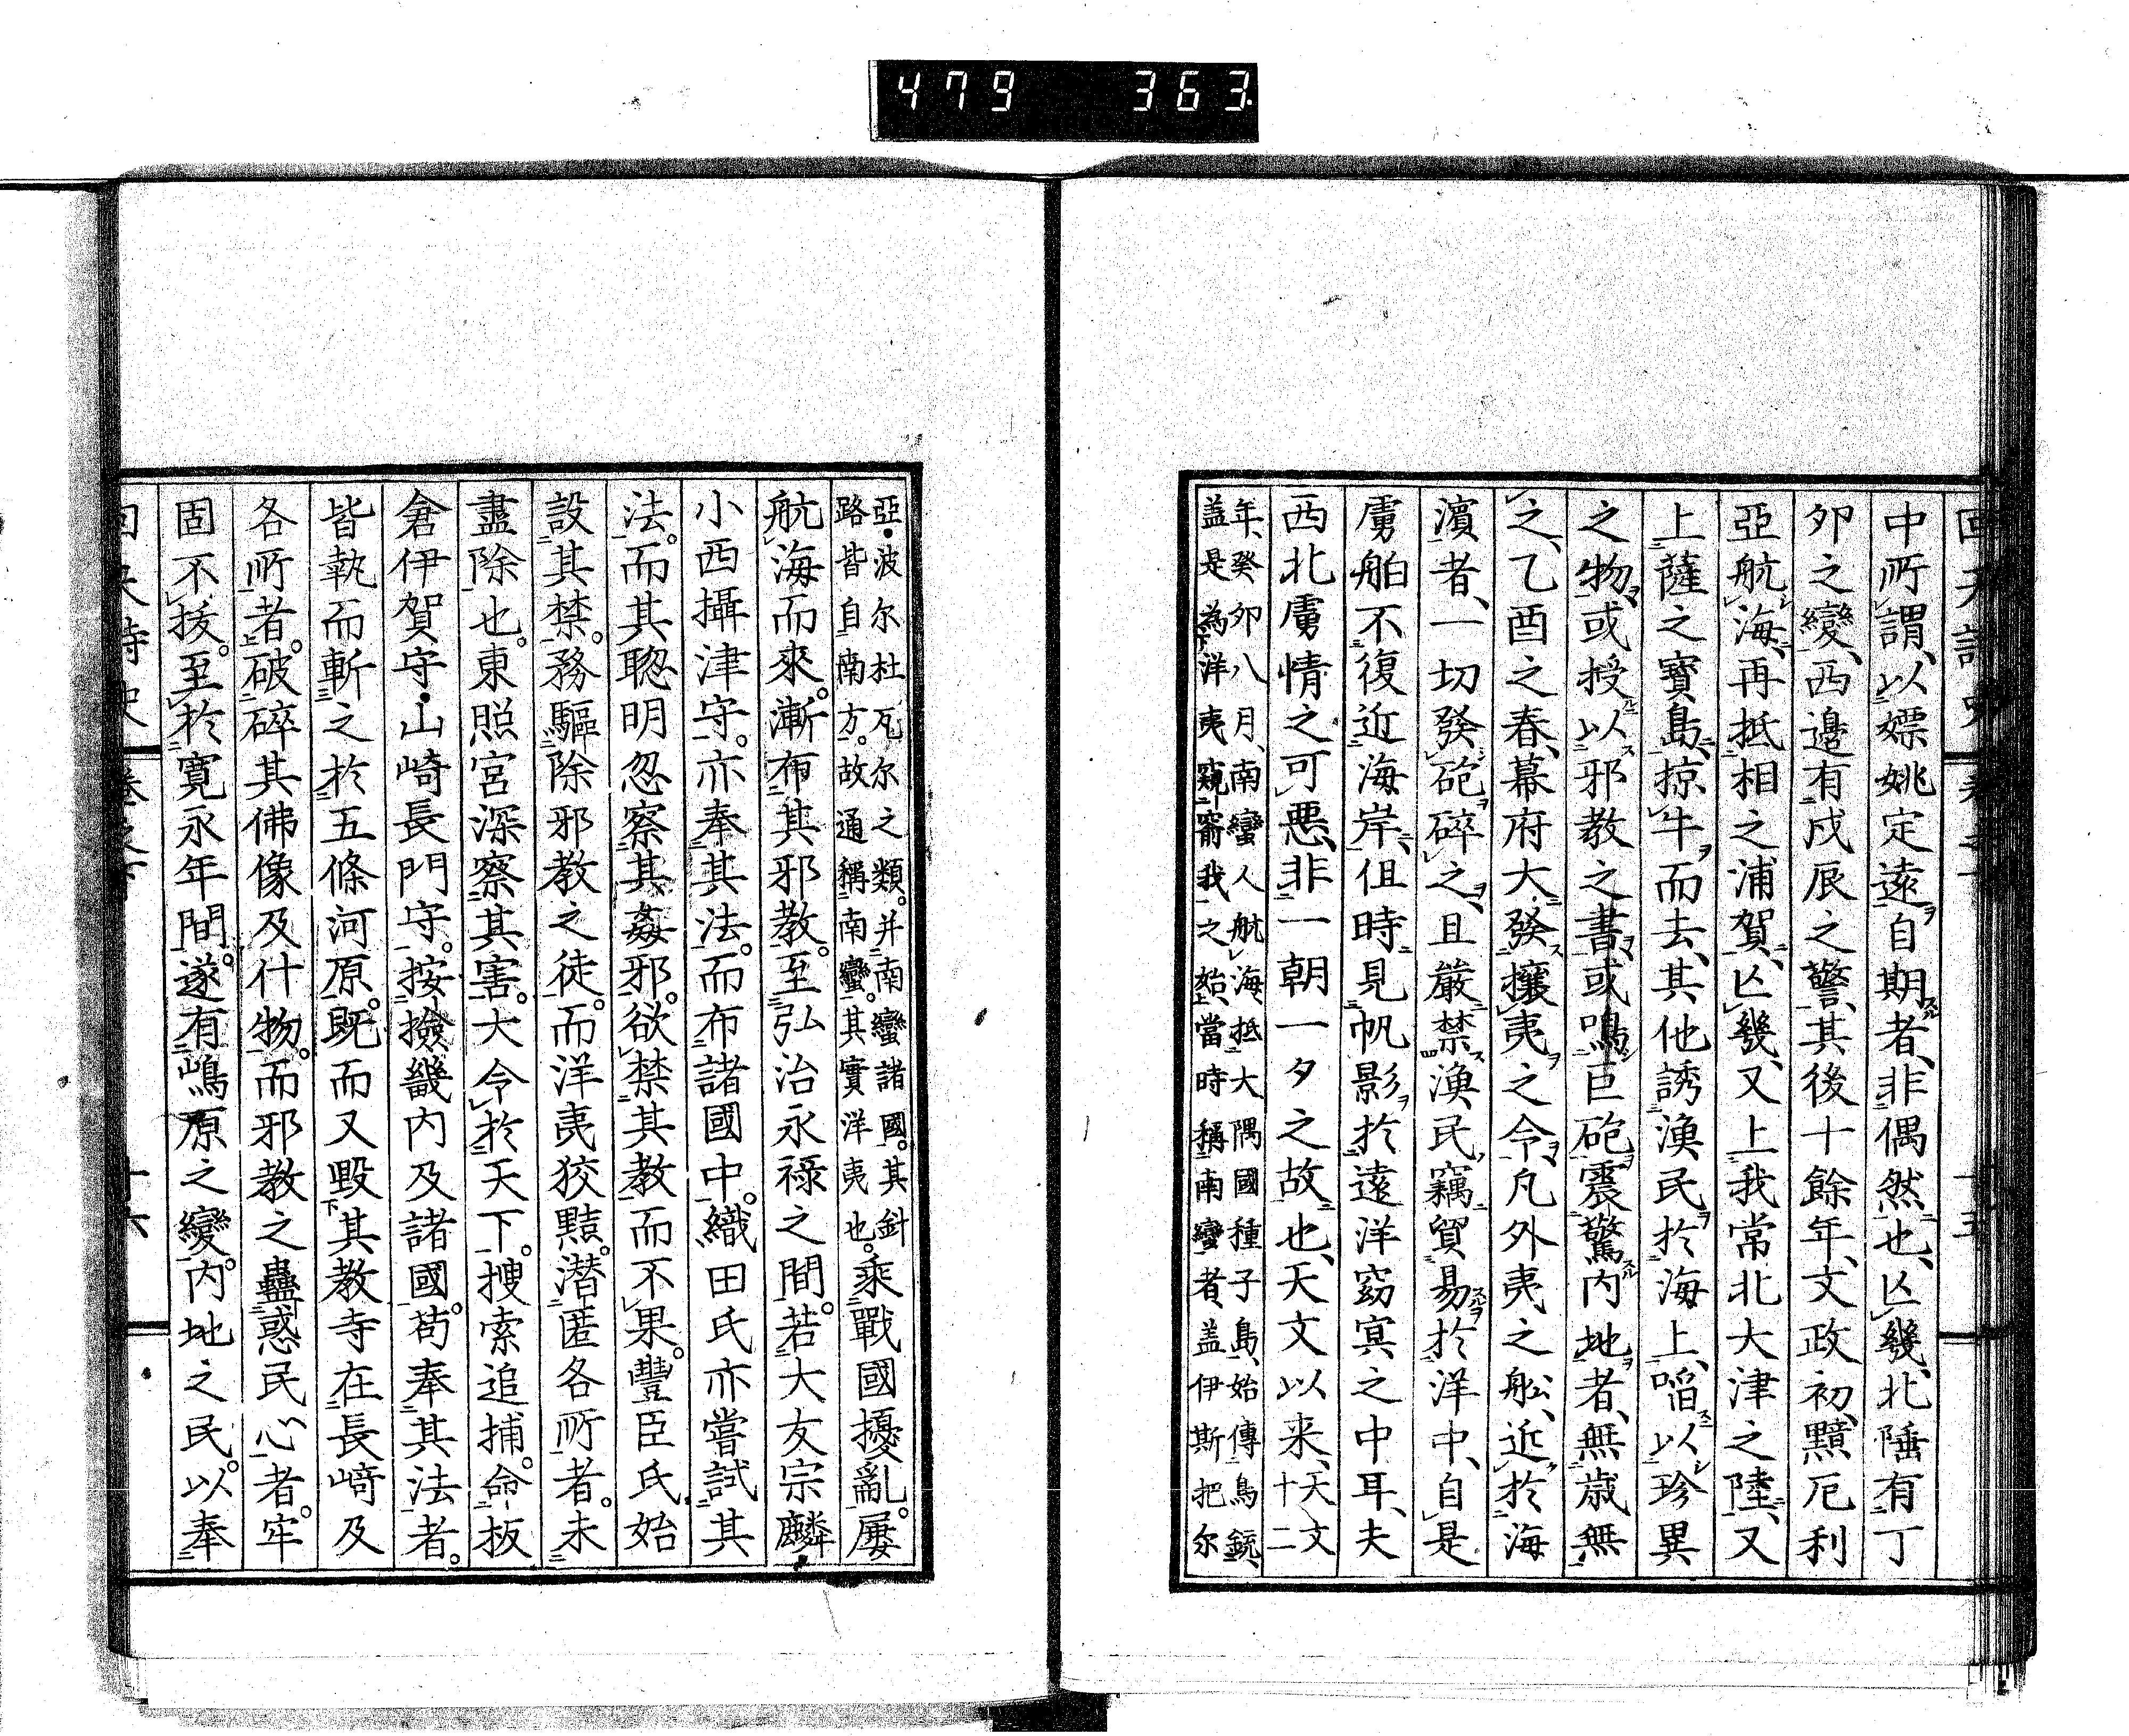 479 363
中所謂、以嫖姚定遠自期者、非偶然也、亾幾、北陲有丁
夘之變、西邊有戊辰之警、其後十餘年、文政初、黯厄利
亞航海、再抵相之浦賀、亾幾、又上我常北大津之陸、又
上薩之寶島、掠牛而去、其他誘漁民於海上、啗以珍異
之物、或授以邪教之書、或鳴巨砲震驚内地者、無歳無
之、乙酉之春、幕府大發攘夷之令、凡外夷之舩、近於海
濵者、一切發砲碎之、且嚴禁漁民、竊貿易於洋中、自是
虜舶不復近海岸、但時見帆影於遠洋窈冥之中耳、夫
西北虜情之可悪、非一朝一夕之故也、天文以来、天文十二
年、癸夘八月、南蠻人航海、抵大隅國種子島、始傳鳥銃、
盖是為洋夷窺窬我之始、當時稱南蠻者、盖伊斯把尓
亞・波尓杜瓦尓之類。并南蠻諸國。其針
路皆自南方。故通稱南蠻。其實洋夷也。乘戰國擾亂。屢
航海而來。漸布其邪教。至弘治永禄之間。若大友宗麟・
小西攝津守。亦奉其法。而布諸國中。織田氏亦嘗試其
法。而其聰明忽察其姦邪。欲禁其教而不果。豐臣氏始
設其禁。務驅除邪教之徒。而洋夷狡黠。潜匿各所者。未
盡除也。東照宮深察其害。大令於天下。搜索追捕。命板
倉伊賀守・山崎長門守。按撿畿内及諸國。苟奉其法者。
皆執而斬之於五條河原。既而又毀其教寺在長崎及
各所者。破碎其佛像及什物。而邪教之蠱惑民心者。牢
固不拔。至於寛永年間。遂有嶋原之變。内地之民。以奉